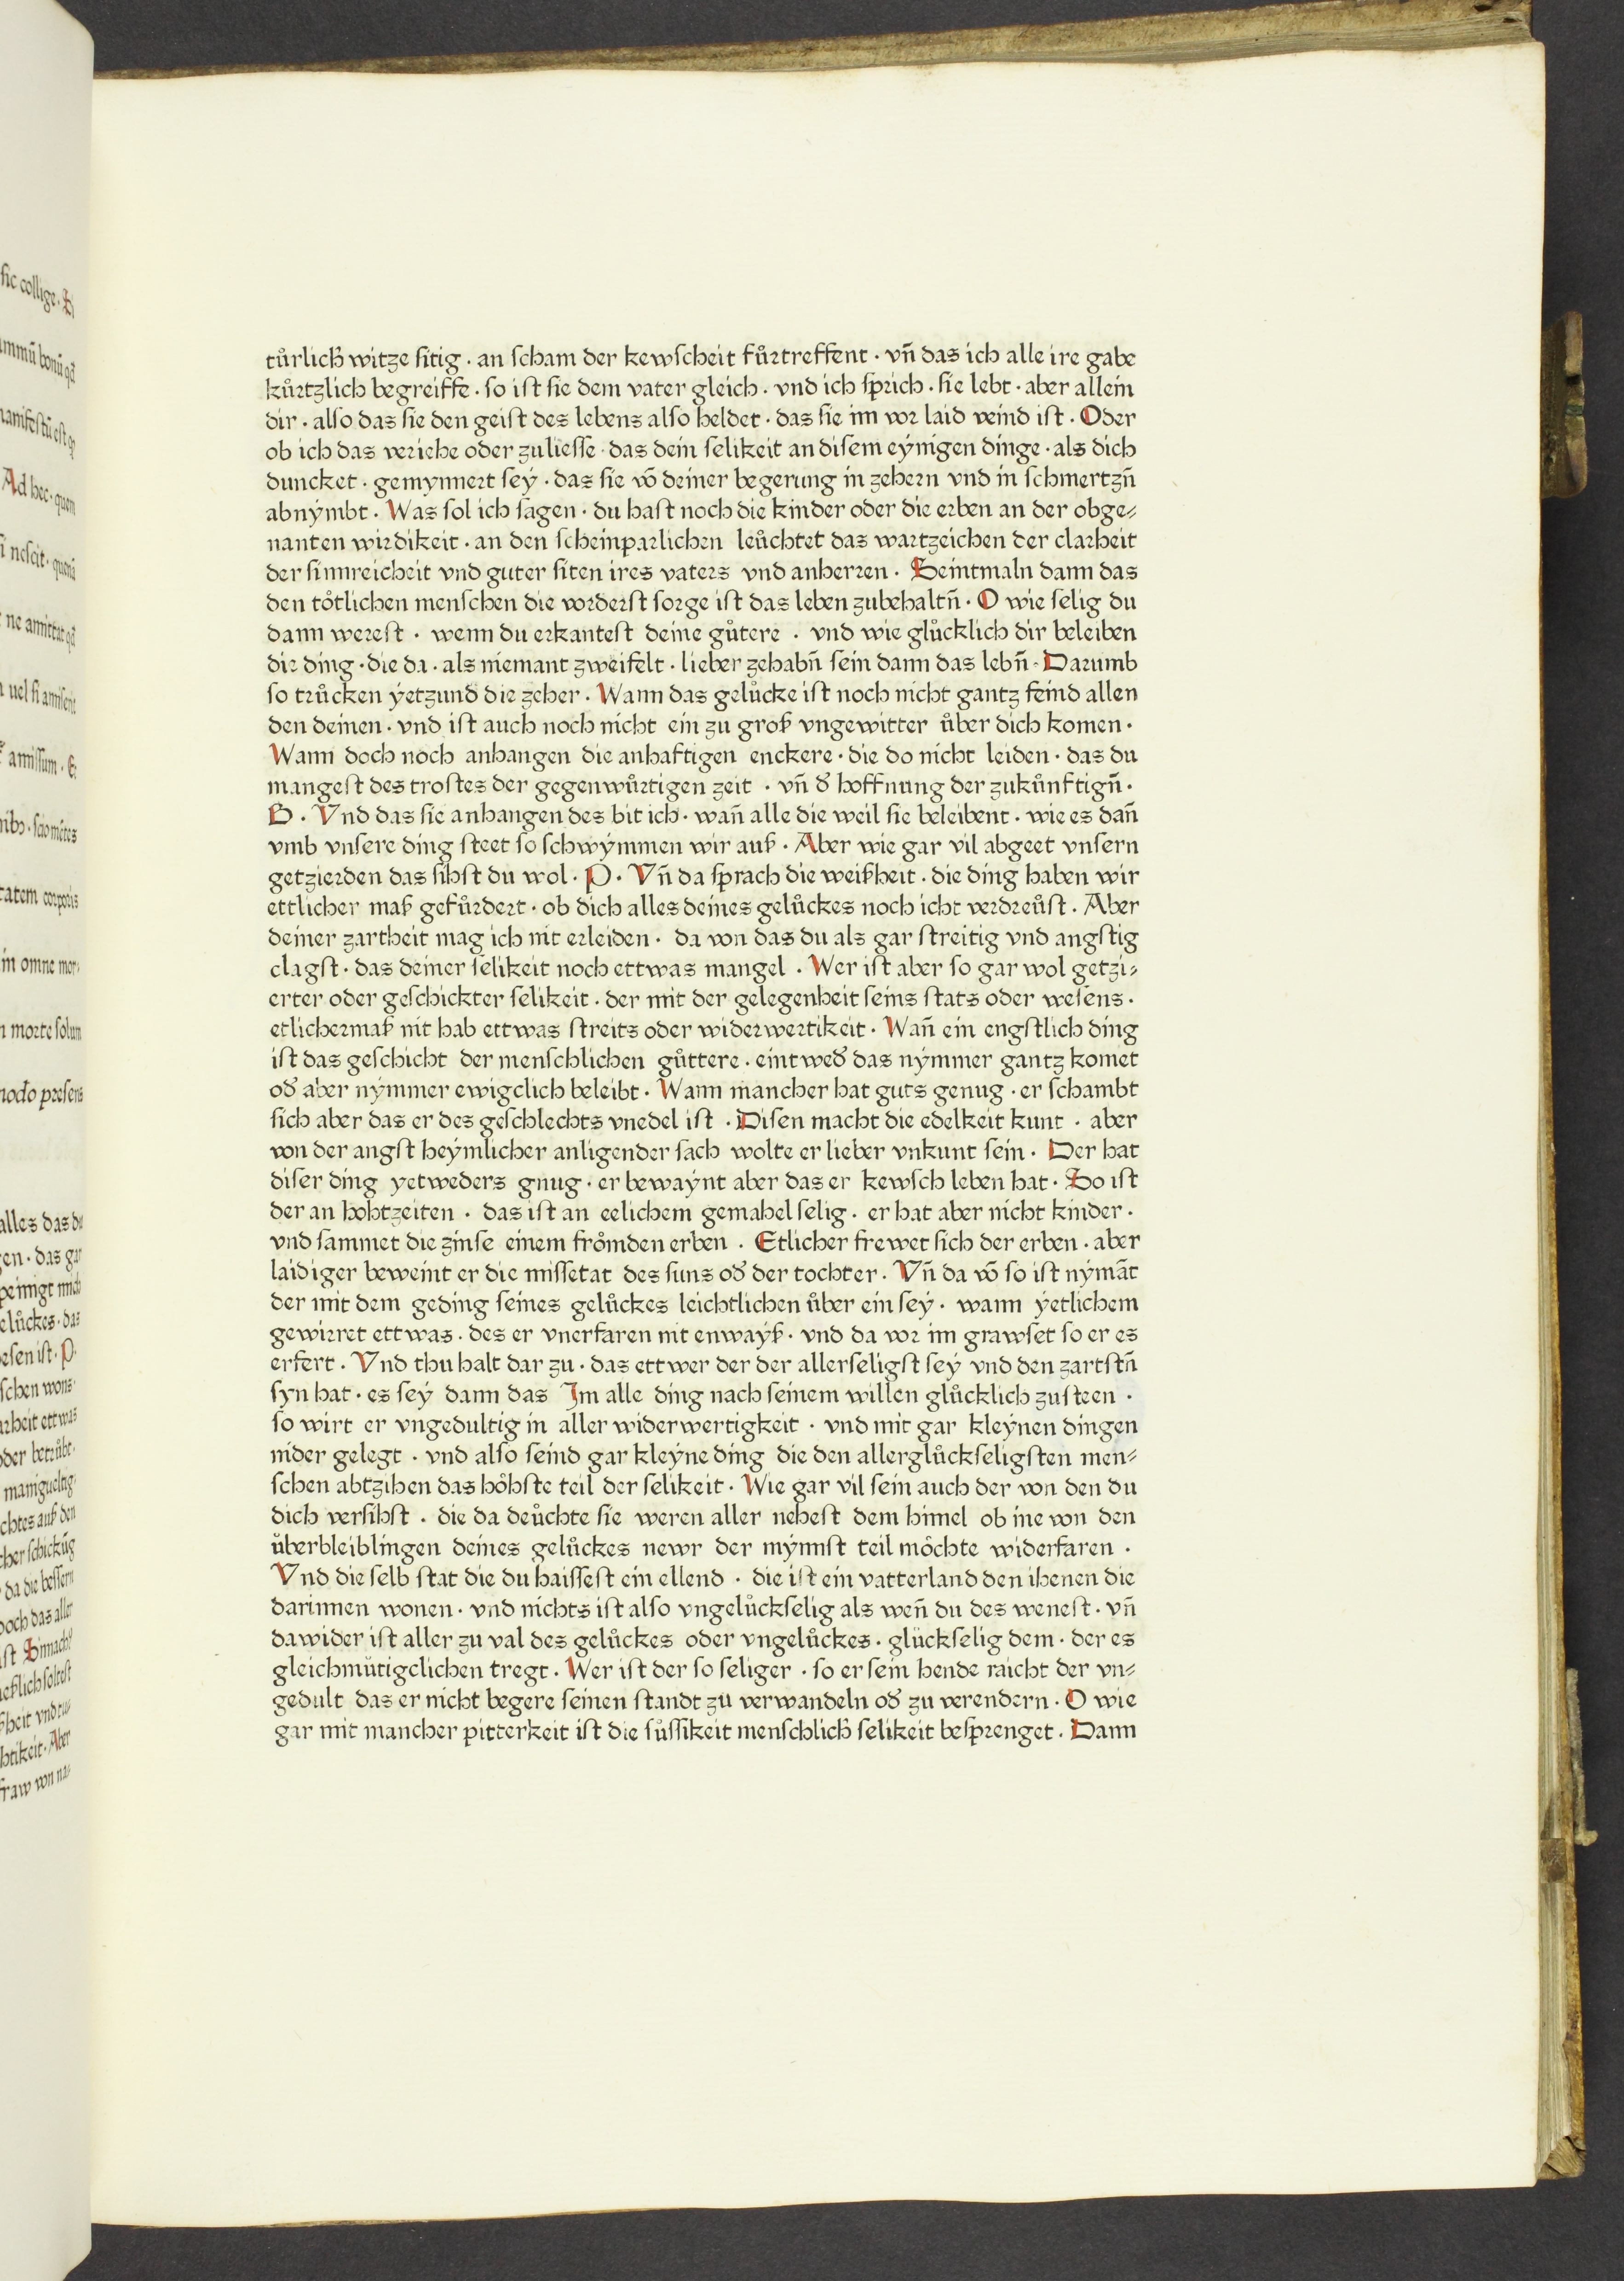 sic collige · Si
ummū bonū qd̄
manifestū est qꝫ
Ad hec · quem
si nescit · quenā
ne amittat qd̄
uel si amiserit
amissum · Et
nibꝫ · scio mētes
tatem corporis
in omne mor-
morte solum
modo presens
alles das du
en · das gar
peinigt mich
elůckes · das
esen ist · P ·
schen wons ·
rheit ettwas
oder betrůbt ·
manigueltig
chtes auß den
cher schickūg
da die bessern
doch das aller
ist
eßlich soltest
ßheit vnd
htikeit · Aber
fraw von na-
tůrlich̄ witze sitig · an scham der kewscheit fůrtreffent · vn̄ das ich alle ire gabe
kůrtzlich begreiffe · so ist sie dem vater gleich · vnd ich sprich · sie lebt · aber allein
dir · also das sie den geist des lebens also heldet · das sie im vor laid veind ist · Oder
ob ich das veriehe oder zuliesse · das dein selikeit an disem eÿnigen dinge · als dich
duncket · gemynnert seÿ · das sie vō deiner begerung in zehern vnd in schmertzn̄
abnÿmbt · Was sol ich sagen · du hast noch die kinder oder die erben an der obge-
nanten wirdikeit · an den scheinparlichen leůchtet das wartzeichen der clarheit
der sinnreicheit vnd guter siten ires vaters vnd anherren · Seintmaln dann das
den tőtlichen menschen die vorderst sorge ist das leben zubehaltn̄ · O wie selig du
dann werest · wenn du erkantest deine gůtere · vnd wie glůcklich dir beleiben
dir ding · die da · als niemant zweifelt · lieber zehabn̄ sein dann das lebn̄ · Darumb
so trůcken ÿetzund die zeher · Wann das gelůcke ist noch nicht gantz feind allen
den deinen · vnd ist auch noch nicht ein zu groß vngewitter ůber dich komen ·
Wann doch noch anhangen die anhaftigen enckere · die do nicht leiden · das du
mangest des trostes der gegenwůrtigen zeit · vn̄ d̄ hoffnung der zukůnftign̄ ·
B · Vnd das sie anhangen des bit ich · wan̄ alle die weil sie beleibent · wie es dan̄
vmb vnsere ding steet so schwÿmmen wir auß · Aber wie gar vil abgeet vnsern
getzierden das sihst du wol · P · Vn̄ da sprach die weißheit · die ding haben wir
ettlicher maß gefůrdert · ob dich alles deines gelůckes noch icht verdreůst · Aber
deiner zartheit mag ich nit erleiden · da von das du als gar streitig vnd angstig
clagst · das deiner selikeit noch ettwas mangel · Wer ist aber so gar wol getzi-
erter oder geschickter selikeit · der mit der gelegenheit seins stats oder wesens ·
etlichermaß nit hab ettwas streits oder widerwertikeit · Wan̄ ein engstlich ding
ist das geschicht der menschlichen gůttere · eintwed̄ das nÿmmer gantz komet
od̄ aber nÿmmer ewigclich beleibt · Wann mancher hat guts genug · er schambt
sich aber das er des geschlechts vnedel ist · Disen macht die edelkeit kunt · aber
von der angst heÿmlicher anligender sach wolte er lieber vnkunt sein · Der hat
diser ding yetweders gnug · er bewaÿnt aber das er kewsch leben hat · So ist
der an hohtzeiten · das ist an eelichem gemahel selig · er hat aber nicht kinder ·
vnd sammet die zinse einem frőmden erben · Etlicher frewet sich der erben · aber
laidiger beweint er die missetat des suns od̄ der tochter · Vn̄ da vō so ist nÿmāt
der mit dem geding seines gelůckes leichtlichen ůber ein seÿ · wann ÿetlichem
gewirret ettwas · des er vnerfaren nit enwaÿß · vnd da vor im grawset so er es
erfert · Vnd thu halt dar zu · das ettwer der der allerseligst seÿ vnd den zartstn̄
syn hat · es seÿ dann das Im alle ding nach seinem willen glůcklich zusteen ·
so wirt er vngedultig in aller widerwertigkeit · vnd mit gar kleÿnen dingen
nider gelegt · vnd also seind gar kleÿne ding die den allerglůckseligsten men-
schen abtzihen das hőhste teil der selikeit · Wie gar vil sein auch der von den du
dich versihst · die da deůchte sie weren aller nehest dem himel ob ine von den
ůberbleiblingen deines gelůckes newr der mÿnnst teil mőchte widerfaren ·
Vnd die selb stat die du haissest ein ellend · die ist ein vatterland den ihenen die
darinnen wonen · vnd nichts ist also vngelůckselig als wen̄ du des wenest · vn̄
dawider ist aller zu val des gelůckes oder vngelůckes · glůckselig dem · der es
gleichmůtigclichen tregt · Wer ist der so seliger · so er sein hende raicht der vn-
gedult das er nicht begere seinen standt zů verwandeln od̄ zu verendern · O wie
gar mit mancher pitterkeit ist die sůssikeit menschlich̄ selikeit besprenget · Dann